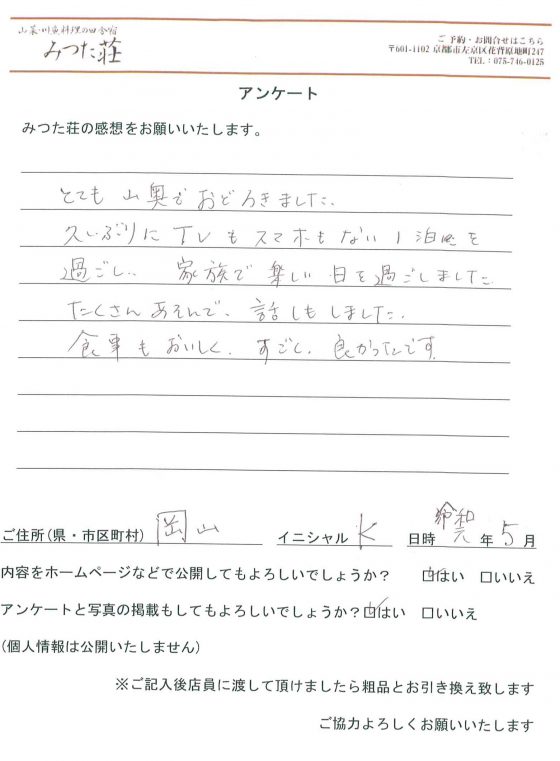 山菜・川魚料理の田舎宿
みつた荘
ご予約・お問合せはこちら
〒601-1102 京都市左京区花背原地町247
TEL：075-746-0125
アンケート
みつた荘の感想をお願いいたします。
とても 山奥で おどろきました.
久しぶりに TVも スマホも ない 1泊を
過ごし、 家族で 楽しい 日を過ごしました
たくさん あそんで、 話しも しました.
食事も おいしく、 すごく、 良かったです.
ご住所(県・市区町村) 岡山 イニシャル K 日時 令和元 年 5 月
内容をホームページなどで公開してもよろしいでしょうか？ ☑はい □いいえ
アンケートと写真の掲載もしてもよろしいでしょうか？☑はい □いいえ
(個人情報は公開いたしません)
※ご記入後店員に渡して頂けましたら粗品とお引き換え致します
ご協力よろしくお願いいたします